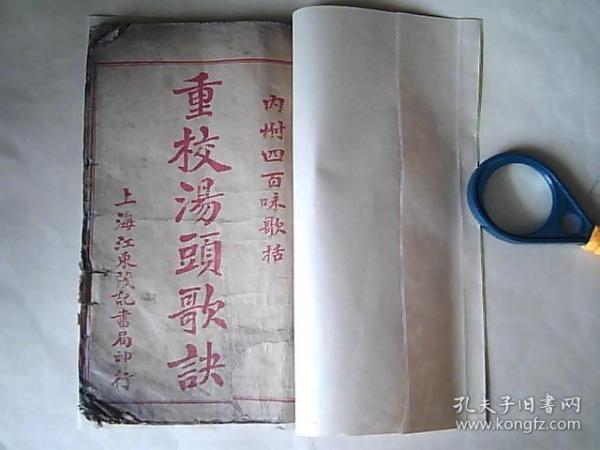 内附四百味歌括
重校湯頭歌訣
上海江東茂記書局印行
孔夫子旧书网
www.kongfz.com